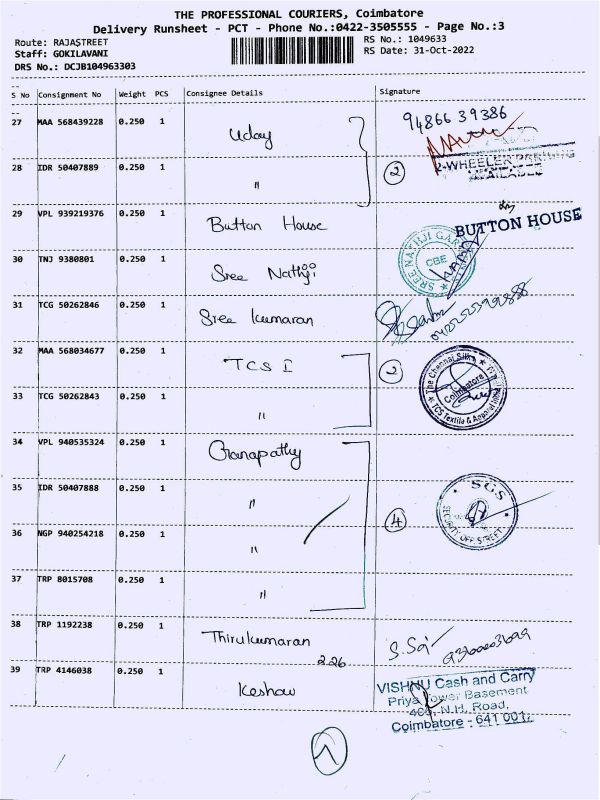 THE PROFESSIONAL COURIERS, Coimbatore
Delivery Runsheet - PCT - Phone No.:0422-3505555 - Page No.:3
Route: RAJASTREET
RS No.: 1049633
Staff: GOKILAVANI
RS Date: 31-Oct-2022
DRS No.: DCJB104963303
S No Consignment No Weight PCS Consignee Details Signature
27 MAA 568439228 0.250 1 Uday 9486639386
2-WHEELER PARKING
AVAILABLE
28 IDR 50407889 0.250 1 " 2
29 VPL 939219376 0.250 1 Button House BUTTON HOUSE
30 TNJ 9380801 0.250 1 Sree Nathji SREE NATHJI CBE
31 TCG 50262846 0.250 1 Sree Kumaran
32 MAA 568034677 0.250 1 TCS I 2 The Chennai Silks
Coimbatore
TCS Textile & Apparel
33 TCG 50262843 0.250 1 "
34 VPL 940535324 0.250 1 Ganapathy
35 IDR 50407888 0.250 1 " SGS
SECURITY OFF. STREET
36 NGP 940254218 0.250 1 " 4
37 TRP 8015708 0.250 1 "
38 TRP 1192238 0.250 1 Thirukumaran S. Sai
2.26
39 TRP 4146038 0.250 1 Keshav VISHNU Cash and Carry
Priya Tower Basement
406, N.H. Road,
Coimbatore - 641 001.